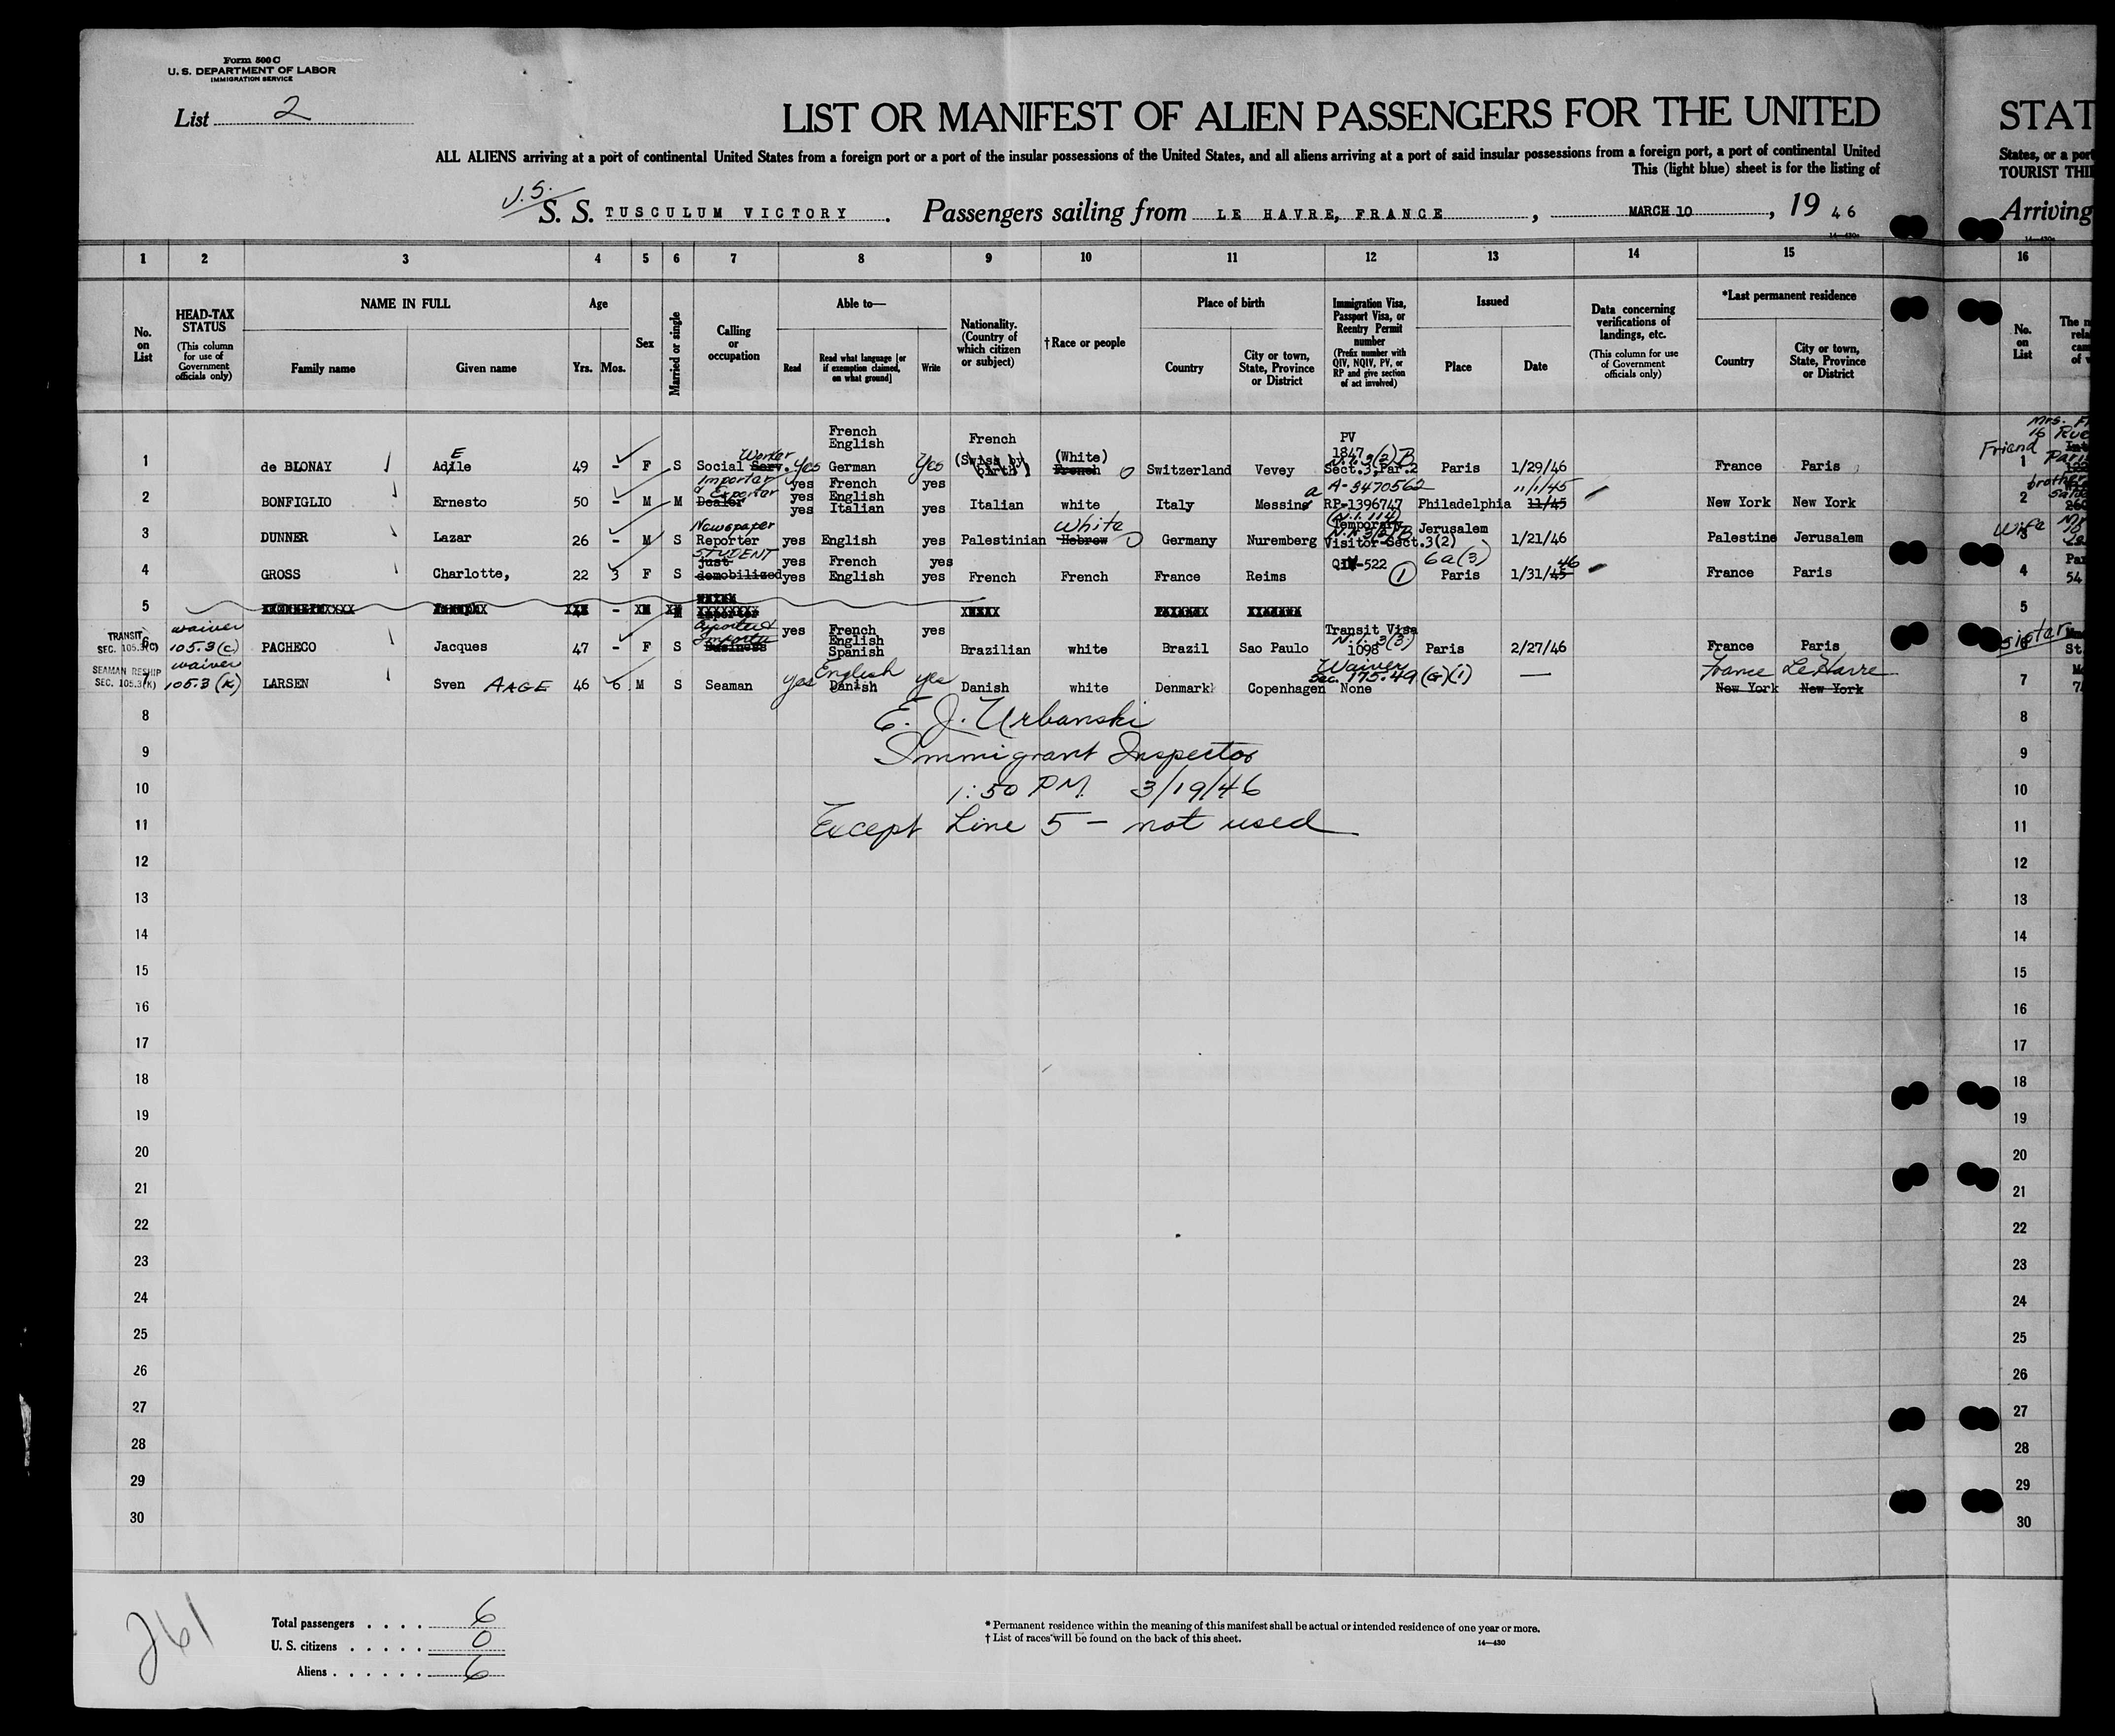 Form 500 C
U. S. DEPARTMENT OF LABOR
IMMIGRATION SERVICE
List 2
LIST OR MANIFEST OF ALIEN PASSENGERS FOR THE UNITED STAT
ALL ALIENS arriving at a port of continental United States from a foreign port or a port of the insular possessions of the United States, and all aliens arriving at a port of said insular possessions from a foreign port, a port of continental United States, or a port
This (light blue) sheet is for the listing of TOURIST THI
S. S. TUSCULUM VICTORY. Passengers sailing from LE HAVRE, FRANCE, MARCH 10, 1946 Arriving
14—430a
1 2 3 4 5 6 7 8 9 10 11 12 13 14 15 16
No. on List
HEAD-TAX STATUS
(This column for use of Government officials only)
NAME IN FULL
Family name Given name
Age
Yrs. Mos.
Sex
Married or single
Calling or occupation
Able to—
Read
Read what language [or if exemption claimed, on what ground]
Write
Nationality. (Country of which citizen or subject)
†Race or people
Place of birth
Country
City or town, State, Province or District
Immigration Visa, Passport Visa, or Reentry Permit number
(Prefix number with QIV, NQIV, PV, or RP and give section of act involved)
Issued
Place Date
Data concerning verifications of landings, etc.
(This column for use of Government officials only)
*Last permanent residence
Country
City or town, State, Province or District
No. on List
1 de BLONAY Adile E 49 - F S Social Serv. Worker Yes French English German Yes French (Swiss by birth) (White) French Switzerland Vevey PV 1847 Sect.3,Par.2 Paris 1/29/46 France Paris 1 Friend
2 BONFIGLIO Ernesto 50 - M M Dealer Importer Exporter yes yes yes French English Italian yes yes yes Italian white Italy Messina A-5470562 RP-1396747 Philadelphia 11/45 11/1/45 New York New York 2 brother
3 DUNNER Lazar 26 - M S Newspaper Reporter yes English yes Palestinian Hebrew White Germany Nuremberg Temporary Visitor Sect.3(2) Jerusalem 1/21/46 Palestine Jerusalem Wife
4 GROSS Charlotte, 22 3 F S STUDENT just demobilized yes yes French English yes yes French French France Reims QIV-522 6a(3) Paris 1/31/45 46 France Paris 4 54
5 5
TRANSIT SEC. 105.3(C) 6 waiver 105.3 (c) PACHECO Jacques 47 - F S Business yes French English Spanish yes Brazilian white Brazil Sao Paulo Transit Visa 1098 Paris 2/27/46 France Paris sister St.
SEAMAN RESHIP SEC. 105.3(K) 7 waiver 105.3 (K) LARSEN Sven AAGE 46 6 M S Seaman yes English Danish yes Danish white Denmark Copenhagen Waiver Sec. 175.49 (G)(1) None — France Le Havre New York New York 7
8 E. J. Urbanski 8
9 Immigrant Inspector 9
10 1:50 PM. 3/19/46 10
11 Except Line 5 - not used 11
12 12
13 13
14 14
15 15
16 16
17 17
18 18
19 19
20 20
21 21
22 22
23 23
24 24
25 25
26 26
27 27
28 28
29 29
30 30
261
Total passengers . . . . 6
U. S. citizens . . . . . 0
Aliens . . . . . . 6
* Permanent residence within the meaning of this manifest shall be actual or intended residence of one year or more.
† List of races will be found on the back of this sheet.
14—430